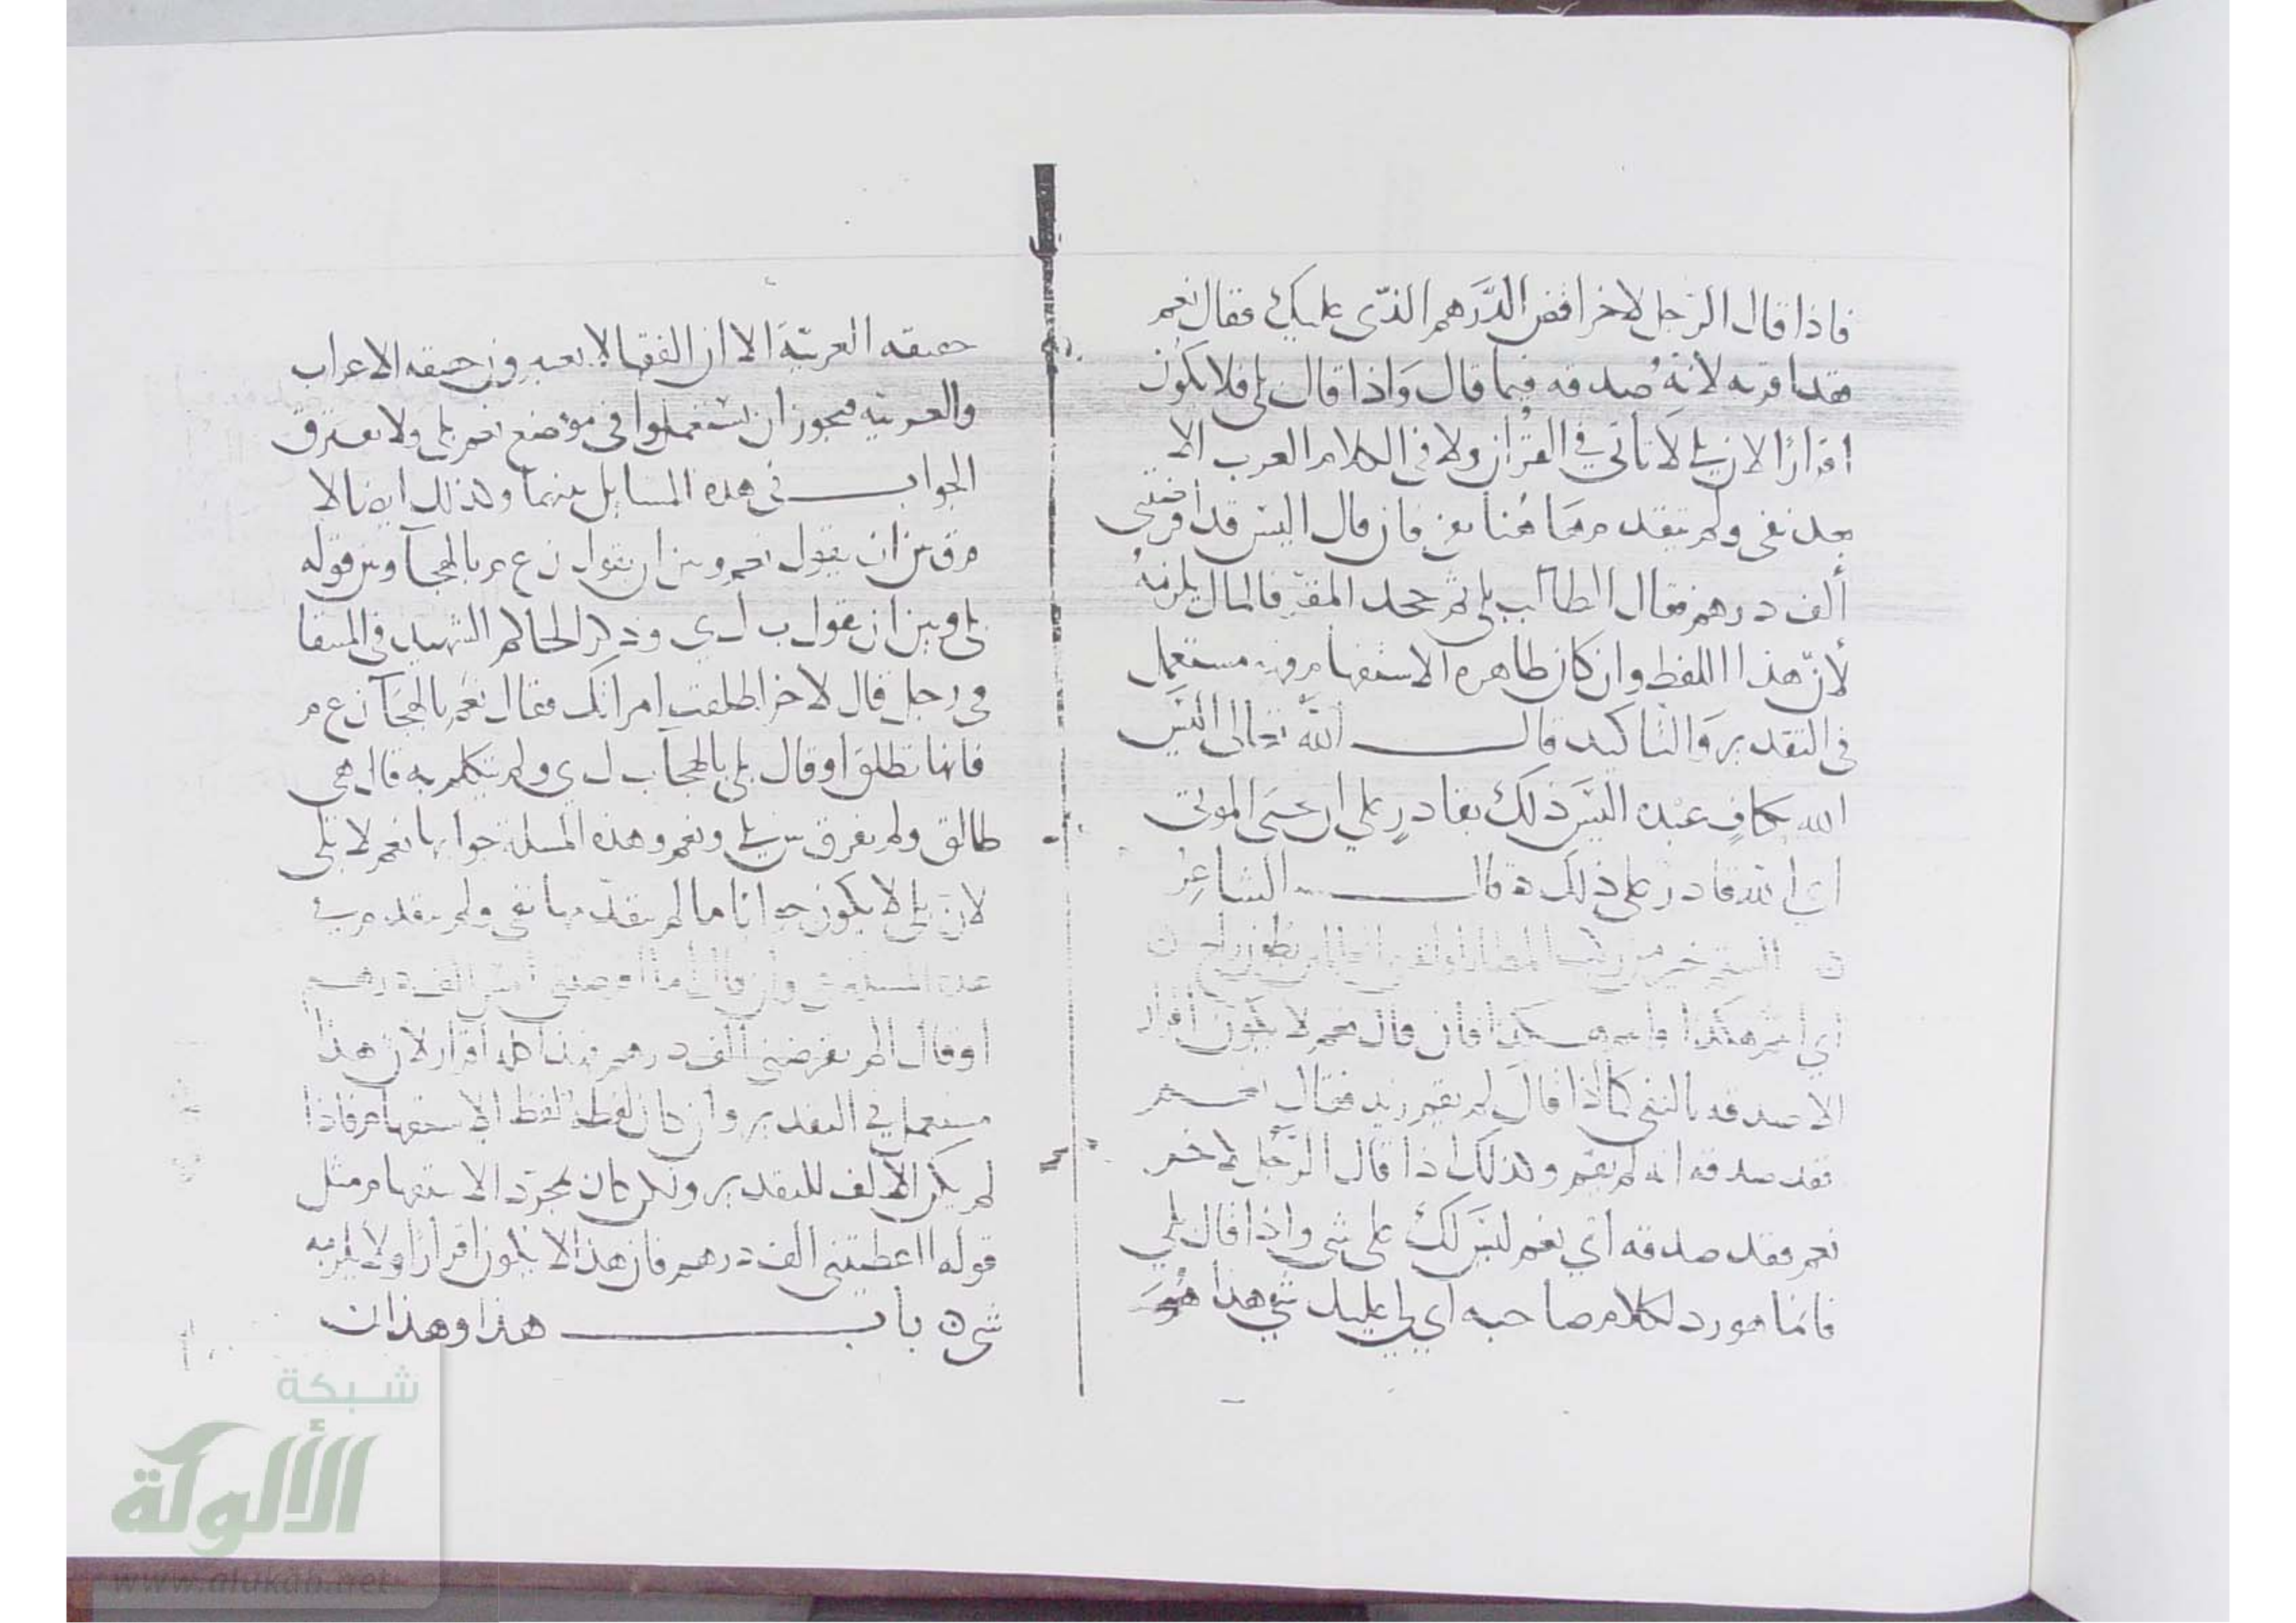 فاذا قال الرجل لاخر اقض الدرهم الذي عليك فقال نعم
فقد اقر به لانه صدقه فيما قال واذا قال بلى فلا يكون
اقرارا لان بلى لا تاتي في القران ولا في الكلام العرب الا
بعد نفي ولم يتقدم هاهنا نفي فان قال اليس قد اقرضتني
ألف درهم فقال الطالب بلى ثم جحد المقر فالمال يلزمه
لان هذا اللفظ وان كان ظاهره الاستفهام فهو مستعمل
في التقدير والتاكيد قال الله تعالى اليس
الله بكاف عبده اليس ذلك بقادر على ان يحيى الموتى
اي الله قادر على ذلك ه قال الشاعر
ن الستم خير من ركب المطايا واندى العالمين بطون راح ن
اي انتم هكذا فان قال نعم لا يكون اقرار
الا صدقه بالنفي كما اذا قال لم يقم زيد فقال نعم
فقد صدقه انه لم يقم وكذلك اذا قال الرجل لاخر
نعم فقد صدقه اي نعم ليس لك على شي واذا قال بلى
فانما هو رد لكلام صاحبه اي بلى لي عليك شي هذا هو
حقيقه العربية الا ان الفقها لا يعتبرون حقيقه الاعراب
والعربيه فيجوز ان يستعملوا في موضع نعم بلى ولا يفترق
الجواب في هذه المسايل بينهما وكذلك ايضا لا
فرق بين ان يقول نعم وبين ان يقول ن ع م بالهجا وبين قوله
بلى وبين ان يقول ب ل ي وذكر الحاكم الشهيد في المنتقا
في رجل قال لاخر اطلقت امراتك فقال نعم بالهجا ن ع م
فانها تطلق او قال بلى بالهجا ب ل ي ولم يتكلم به قال هي
طالق ولم يفرق بين بلى ونعم وهذه المسلة جوابها نعم لا بلى
لان بلى لا يكون جوابا ما لم يتقدمها نفي ولم يتقدم في
هذه المسلة نفي وان قال اما اقرضتني امس الف درهم
او قال الم تقرضني الف درهم فهذا كله اقرار لان هذا
مستعمل في التقدير وان كان لفظه لفظ الاستفهام فاذا
لم يكن الالف للتقدير ولكن كان مجرد الاستفهام مثل
قوله ااعطيتني الف درهم فان هذا لا يكون اقرارا ولا يلزمه
شي ه باب هذا وهذان
شبكة
الألوكة
www.alukah.net